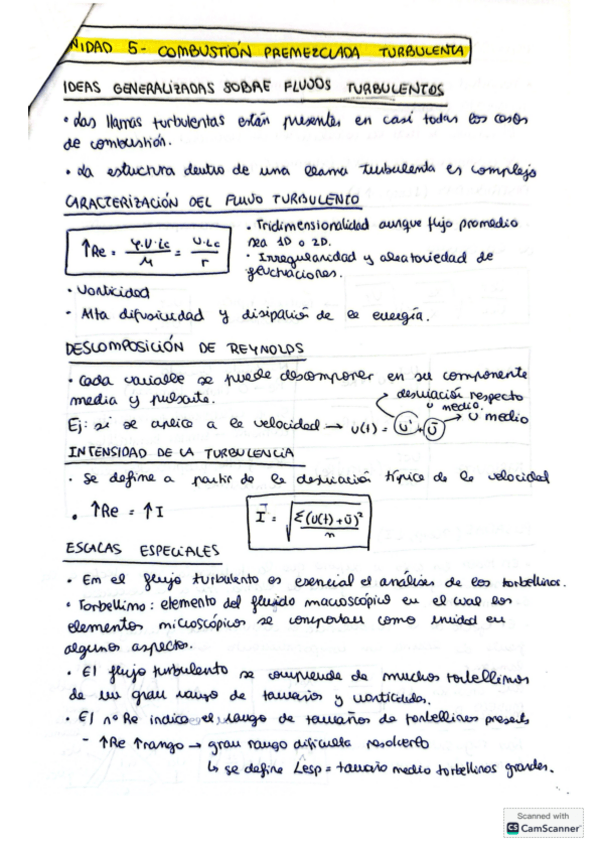 NIDAD 5 - COMBUSTIÓN PREMEZCLADA TURBULENTA
IDEAS GENERALIZADAS SOBRE FLUJOS TURBULENTOS
• Las llamas turbulentas están presentes en casi todas los casos
de combustión.
• La estuctura dentro de una llama turbulenta es complejo
CARACTERIZACIÓN DEL FLUJO TURBULENTO
↑Re = φ·U·Lc / M = U·Lc / r
• Tridimensionalidad aunque flujo promedio
sea 1D o 2D.
• Irregularidad y aleatoriedad de
fluctuaciones.
• Vorticidad
- Alta difusividad y disipación de la energía.
DESCOMPOSICIÓN DE REYNOLDS
• Cada variable se puede descomponer en su componente
media y pulsante.
→ desviación respecto
u medio.
Ej: si se aplica a la velocidad → u(t) = u' + ū → u medio
INTENSIDAD DE LA TURBULENCIA
• Se define a partir de la desviación típica de la velocidad
• ↑Re = ↑I
I = √(Σ(u(t) + ū)² / n)
ESCALAS ESPECIALES
• Em el flujo turbulento es esencial el análisis de los torbellinos.
• Torbellimo: elemento del fluido macoscópico en el cual los
elementos micoscópicos se comportan como unidad en
algunos aspectos.
• El flujo turbulento se comprende de muchos torbellinos
de un gran rango de tamaños y vorticidades.
• El nº Re indica el rango de tamaños de torbellinos presents
- ↑Re ↑rango → gran rango dificulta resolverlo
↳ se define Lesp = tamaño medio torbellinos grandes.
Scanned with
CS CamScanner